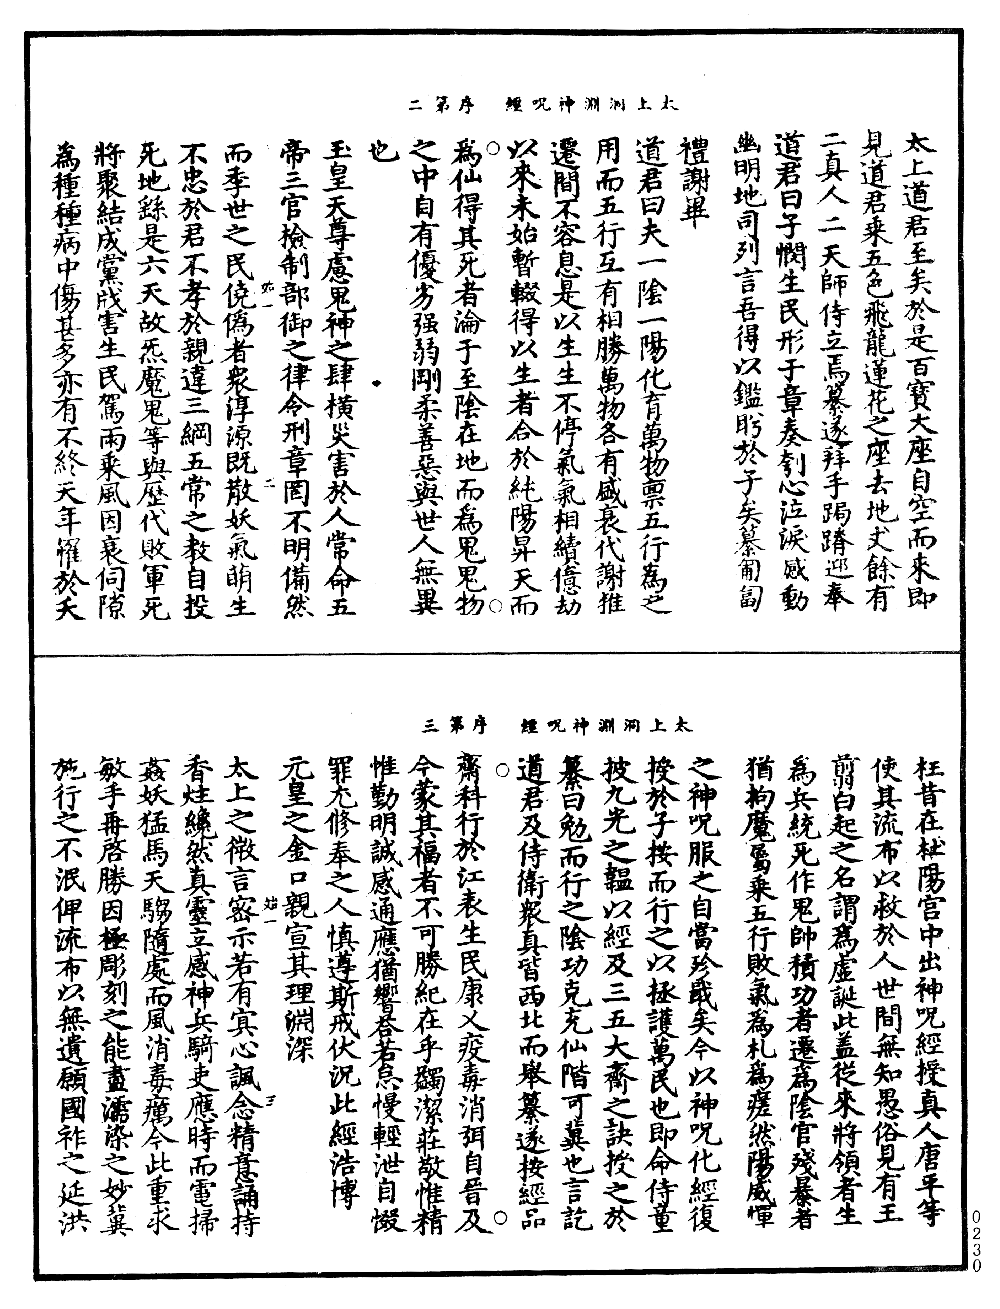 太上洞淵神呪經　序第二
太上道君至矣於是百寶大座自空而來即
見道君乘五色飛龍蓮花之座去地丈餘有
二真人二天師侍立焉纂遂拜手跼蹐迎奉
道君曰子憫生民形于章奏刳心泣淚感動
幽明地司列言吾得以鑑盼於子矣纂匍匐
禮謝畢
道君曰夫一陰一陽化育萬物禀五行為之
用而五行互有相勝萬物各有盛衰代謝推
遷間不容息是以生生不停氣氣相續億劫
以來未始暫輟得以生者合於純陽昇天而
為仙得其死者淪于至陰在地而為鬼鬼物
之中自有優劣强弱剛柔善惡與世人無異
也
玉皇天尊慮鬼神之肆橫災害於人常命五
帝三官檢制部御之律令刑章罔不明備然
而季世之民僥偽者衆淳源既散妖氣萌生
不忠於君不孝於親違三綱五常之教自投
死地繇是六天故炁魔鬼等與歷代敗軍死
將聚結成黨戕害生民駕雨乘風因衰伺隙
為種種病中傷甚多亦有不終天年罹於夭
始一
二
太上洞淵神呪經　序第三
枉昔在杜陽宮中出神呪經授真人唐平等
使其流布以救於人世間無知愚俗見有王
翦白起之名謂為虛誕此盖從來將領者生
為兵統死作鬼帥積功者遷為陰官殘暴者
猶拘魔屬乘五行敗氣為札為瘥然陽威憚
之神呪服之自當殄戢矣今以神呪化經復
授於子按而行之以拯護萬民也即命侍童
披九光之韞以經及三五大齋之訣授之於
纂曰勉而行之陰功克充仙階可冀也言訖
道君及侍衛衆真皆西北而舉纂遂按經品
齋科行於江表生民康乂疫毒消弭自晉及
今蒙其福者不可勝紀在乎蠲潔莊敬惟精
惟勤明誠感通應猶響荅若怠慢輕泄自掇
罪尤修奉之人慎遵斯戒伏況此經浩博
元皇之金口親宣其理淵深
太上之微言密示若有寘心諷念精意誦持
香炷纔然真靈立感神兵騎吏應時而電掃
姦妖猛馬天騶隨處而風消毒癘今此重求
敏手再啓勝因極彫刻之能盡濡染之妙冀
施行之不泯俾流布以無遺願國祚之延洪
始一
三
0230